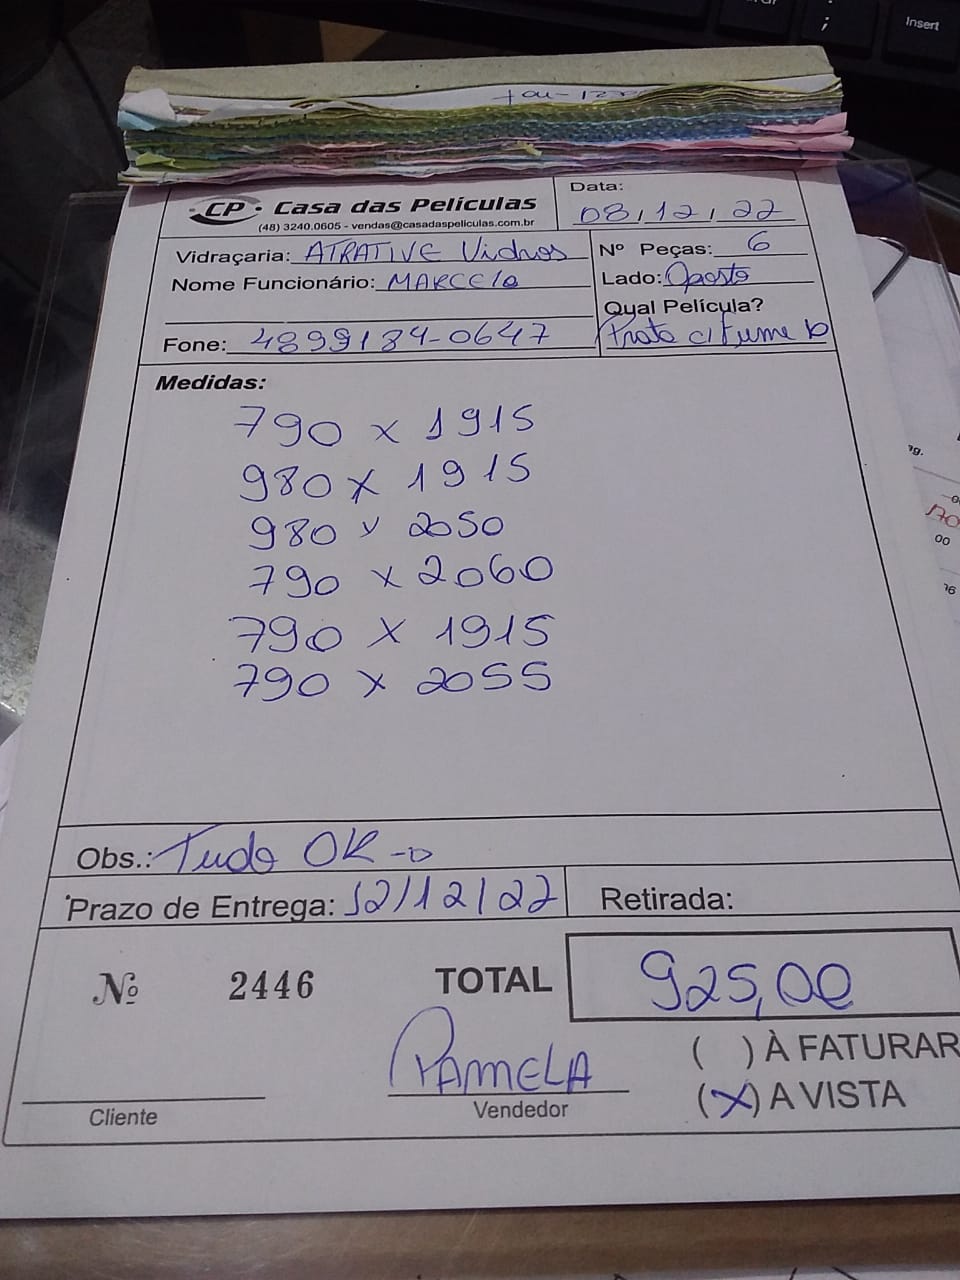 Insert
;
CP • Casa das Películas
(48) 3240.0605 - vendas@casadaspeliculas.com.br
Data: 08/12/22
Vidraçaria: ATRATIVE Vidros
Nº Peças: 6
Nome Funcionário: MARCELO
Lado: Oposto
Qual Película?
Prata c/ fume b
Fone: 4899184-0647
Medidas:
790 x 1915
980 x 1915
980 x 2050
790 x 2060
790 x 1915
790 x 2055
Obs.: Tudo OK
Prazo de Entrega: 12/12/22
Retirada:
Nº 2446
TOTAL 925,00
( ) À FATURAR
PAMELA
(X) A VISTA
Cliente
Vendedor